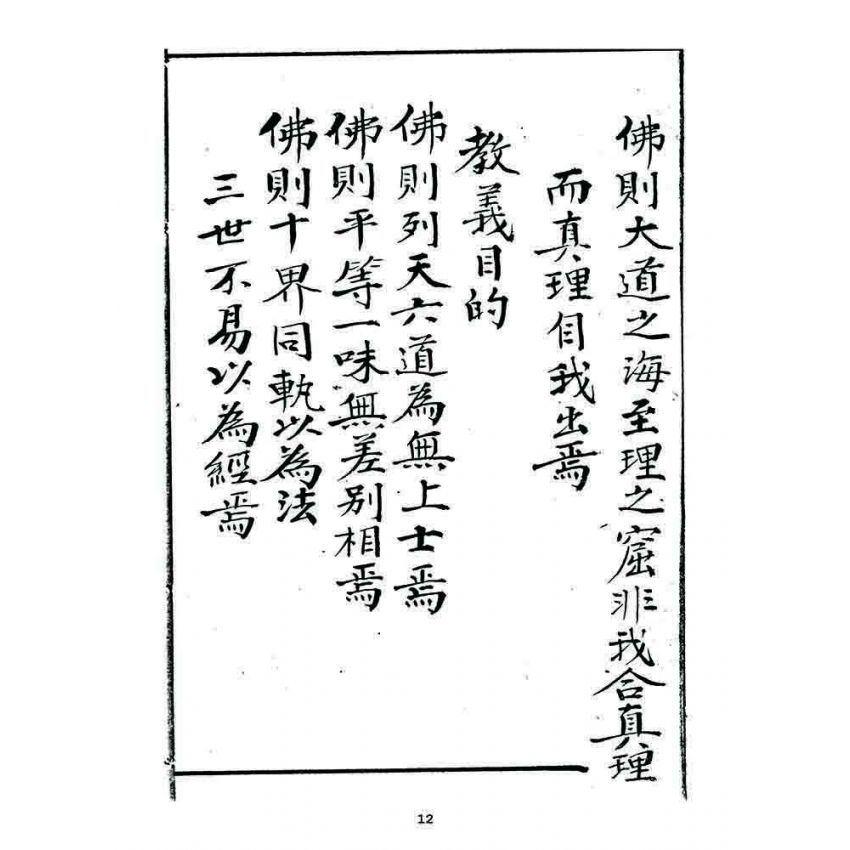 佛則大道之海至理之窟非我合真理
而真理自我出焉
教義目的
佛則列天六道為無上士焉
佛則平等一味無差別相焉
佛則十界同軌以為法
三世不易以為經焉
12